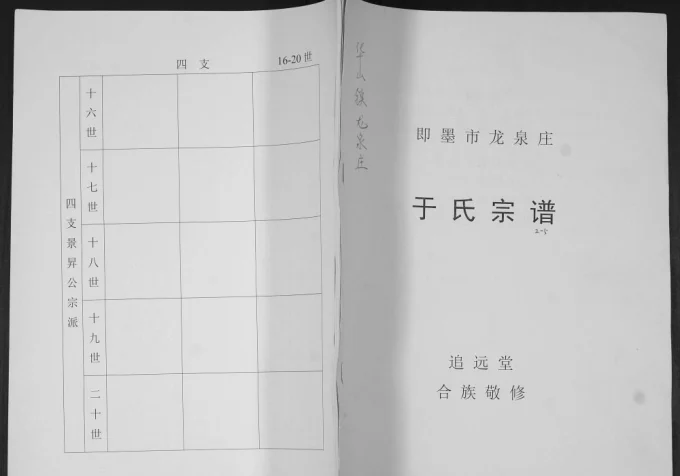 四支 16-20世
四支景昇公宗派
十六世
十七世
十八世
十九世
二十世
华山镇龙泉庄
即墨市龙泉庄
于氏宗谱
2-5
追远堂
合族敬修